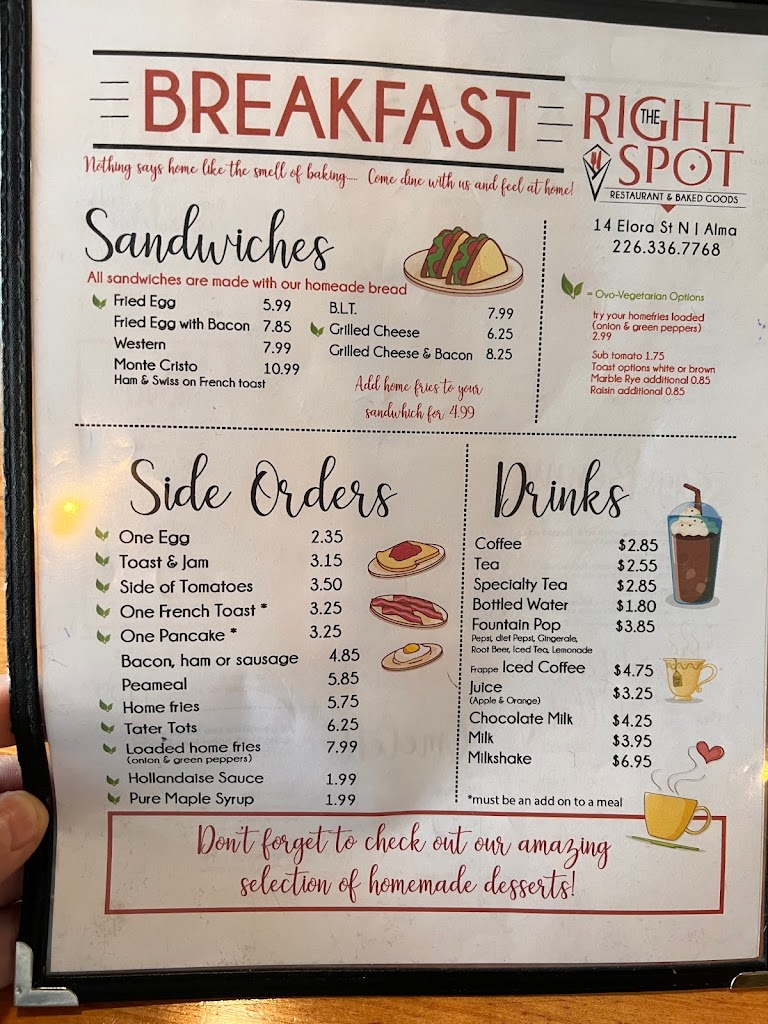 BREAKFAST
THE
RIGHT
SPOT
RESTAURANT & BAKED GOODS
Nothing says home like the smell of baking..... Come dine with us and feel at home!
14 Elora St N | Alma
226.336.7768
Sandwiches
All sandwiches are made with our homeade bread
Fried Egg 5.99
Fried Egg with Bacon 7.85
Western 7.99
Monte Cristo 10.99
Ham & Swiss on French toast
B.L.T. 7.99
Grilled Cheese 6.25
Grilled Cheese & Bacon 8.25
Add home fries to your
sandwhich for 4.99
= Ovo-Vegetarian Options
try your homefries loaded
(onion & green peppers)
2.99
Sub tomato 1.75
Toast options white or brown
Marble Rye additional 0.85
Raisin additional 0.85
Side Orders
One Egg 2.35
Toast & Jam 3.15
Side of Tomatoes 3.50
One French Toast * 3.25
One Pancake * 3.25
Bacon, ham or sausage 4.85
Peameal 5.85
Home fries 5.75
Tater Tots 6.25
Loaded home fries 7.99
(onion & green peppers)
Hollandaise Sauce 1.99
Pure Maple Syrup 1.99
Drinks
Coffee $2.85
Tea $2.55
Specialty Tea $2.85
Bottled Water $1.80
Fountain Pop $3.85
Pepsi, diet Pepsi, Gingerale,
Root Beer, Iced Tea, Lemonade
Frappe Iced Coffee $4.75
Juice $3.25
(Apple & Orange)
Chocolate Milk $4.25
Milk $3.95
Milkshake $6.95
*must be an add on to a meal
Don't forget to check out our amazing
selection of homemade desserts!